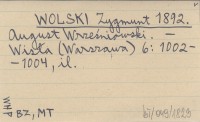 WOLSKI Zygmunt 1892.
August Wrześniowski. –
Wisła (Warszawa) 6: 1002–
–1004, il.
WHP BZ, MT